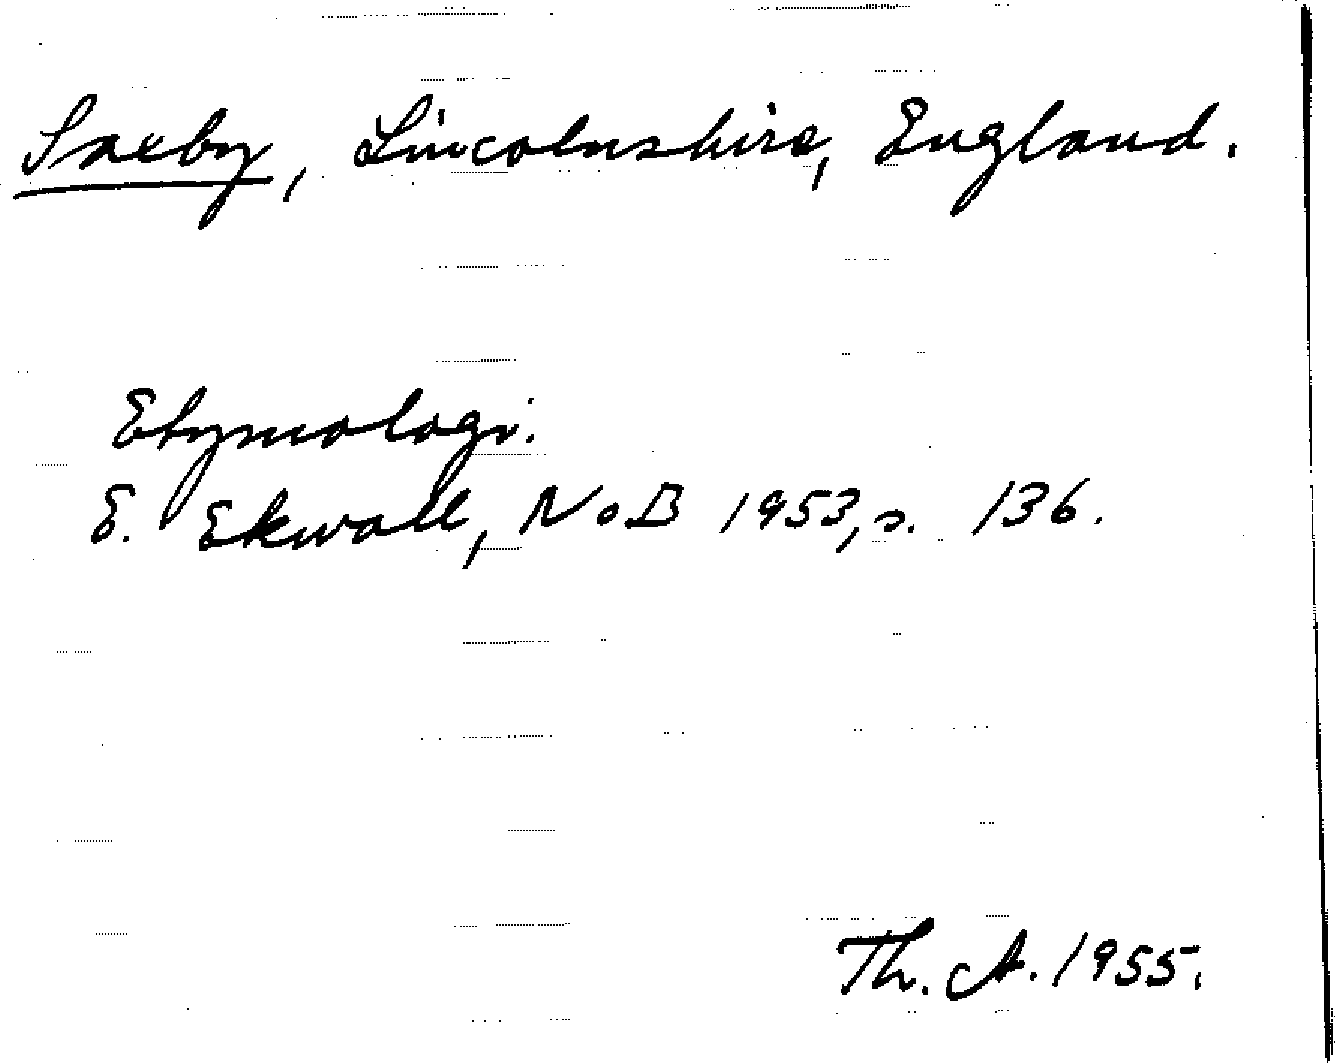 Saxby, Lincolnshire, England.
Etymologi.
E. Ekwall, NoB 1953, s. 136.
Th. A. 1955.